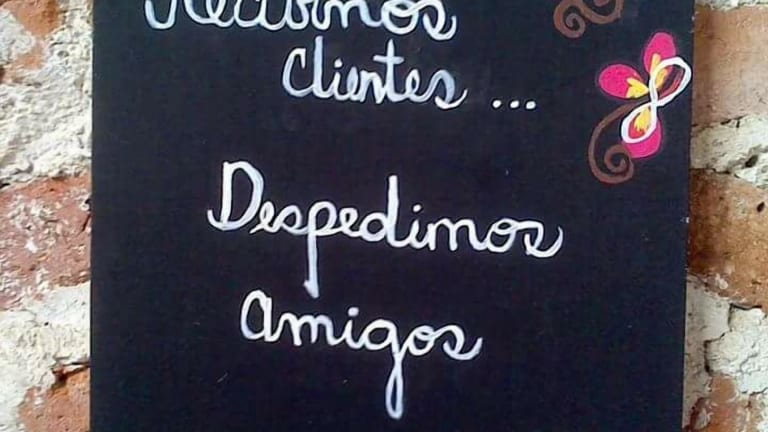 Recibimos
Clientes ...
Despedimos
amigos